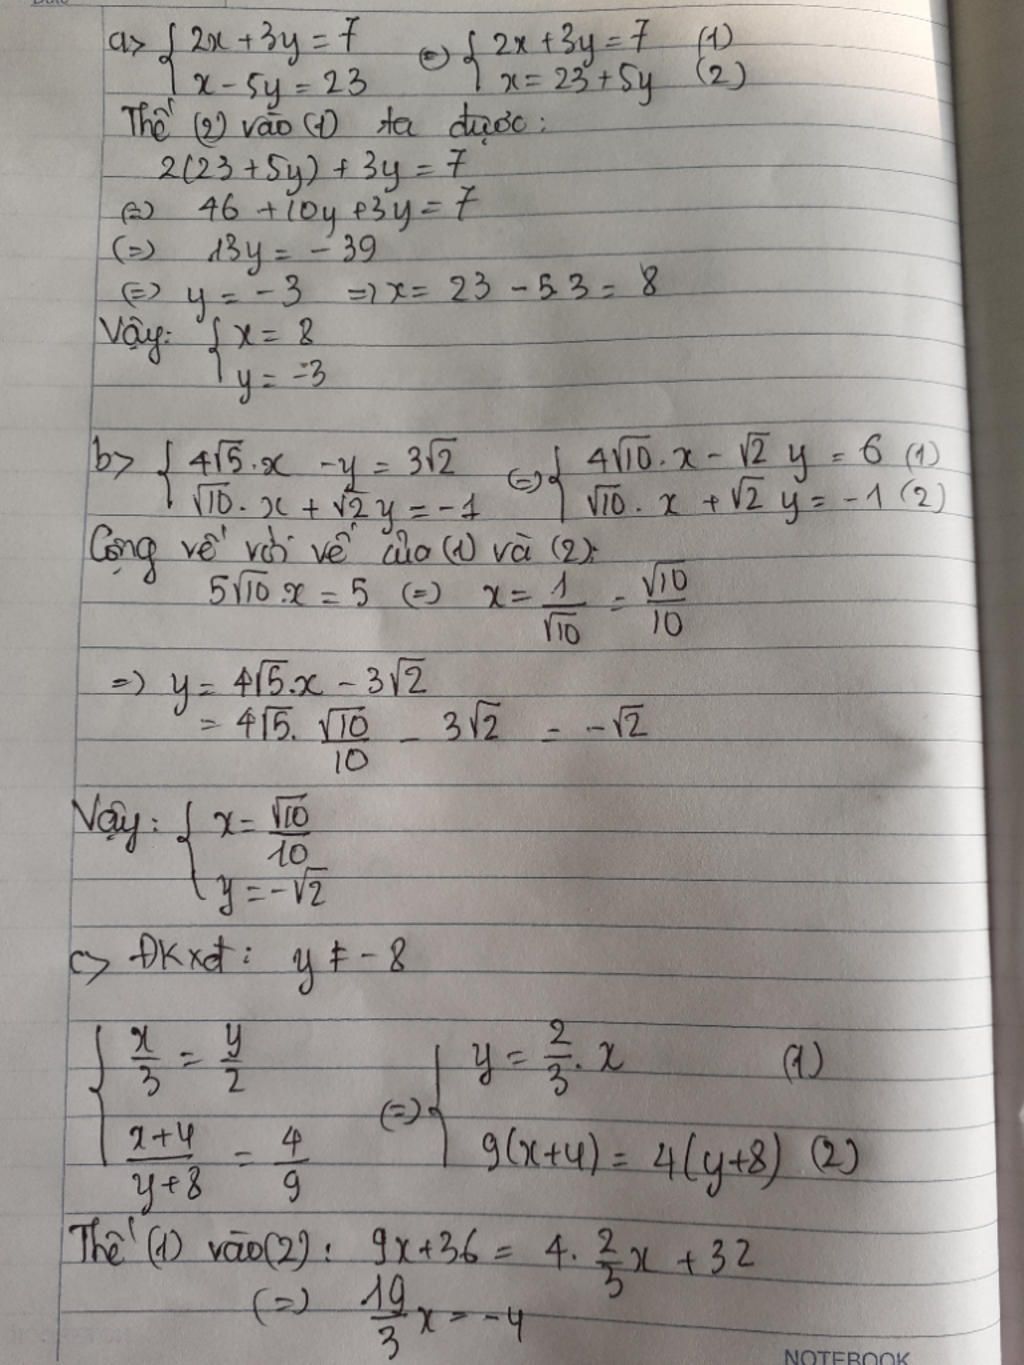 a> { 2x + 3y = 7 (=) { 2x + 3y = 7 (1)
x - 5y = 23 x = 23 + 5y (2)
Thế (2) vào (1) ta được:
2(23 + 5y) + 3y = 7
(=) 46 + 10y + 3y = 7
(=) 13y = - 39
(=) y = - 3 => x = 23 - 5.3 = 8
Vậy: { x = 8
y = -3
b> { 4√5.x - y = 3√2 (=) { 4√10.x - √2 y = 6 (1)
√10. x + √2 y = - 1 √10. x + √2 y = -1 (2)
Cộng vế với vế của (1) và (2):
5√10.x = 5 (=) x = 1/√10 = √10/10
=> y = 4√5.x - 3√2
= 4√5. √10/10 - 3√2 = -√2
Vậy: { x = √10/10
y = -√2
c> ĐKxđ: y ≠ - 8
{ x/3 = y/2 (=) { y = 2/3. x (1)
x+4/y+8 = 4/9 9(x+4) = 4(y+8) (2)
Thế (1) vào (2): 9x + 36 = 4. 2/3 x + 32
(=) 19/3 x = -4
NOTEBOOK